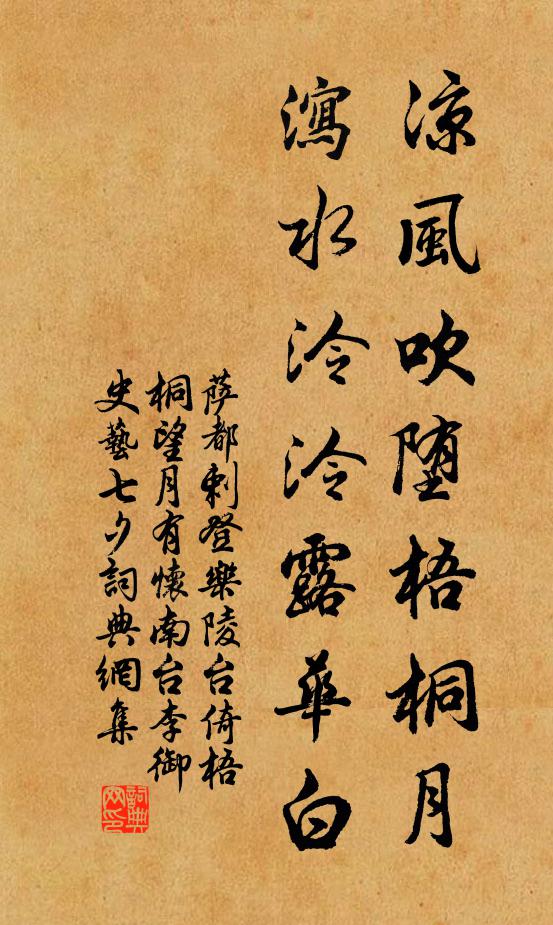 凉風吹堕梧桐月
瀉水泠泠露華白
萨都剌登樂陵台倚梧
桐望月有懷南台李御
史藝七夕詞典網集
詞典网印